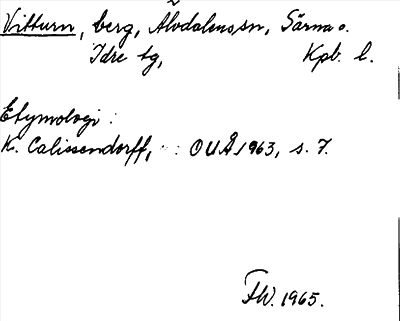 Vitturn, berg, Älvdalens sn, Särna o.
Idre tg, Kpb. l.
Etymologi :
K. Calissendorff, : OUÅ 1963, s. 7.
FW. 1965.